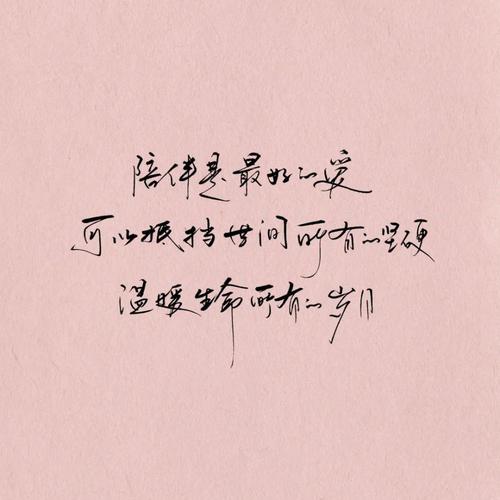 陪伴是最好的爱
可以抵挡世间所有的坚硬
温暖生命所有的岁月